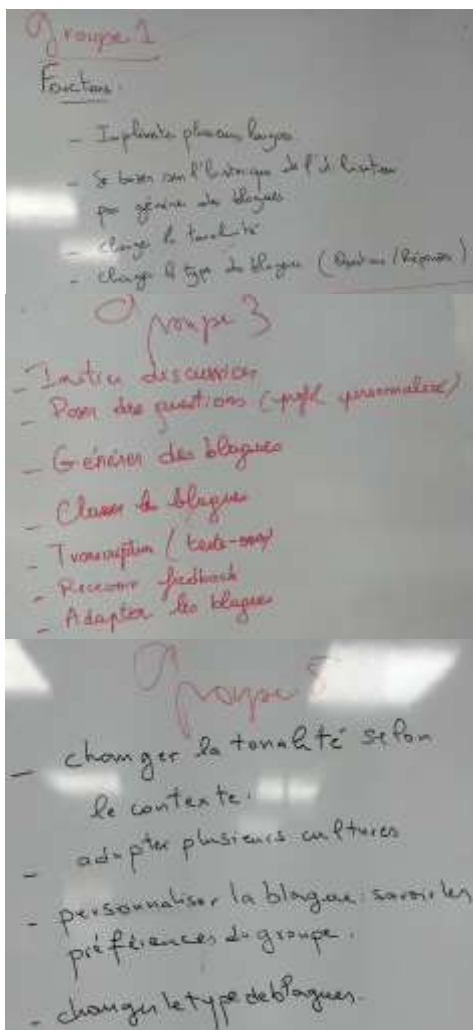 Groupe 1
Fonctions.
- Implémenter plusieurs langues
- Se baser sur l'historique de l'utilisateur
pour générer des blagues
- changer la tonalité
- changer le type de blagues (Questions / Réponses)
Groupe 3
- Initier discussion
- Poser des questions (profil personnalisé)
- Générer des blagues
- Classer les blagues
- Transcription (texte-
- Recevoir feedback
- Adapter les blagues
Groupe 5
- changer la tonalité selon
le contexte.
- adapter plusieurs cultures
- personnaliser la blague: savoir les
préférences du groupe.
- changer le type de blagues.